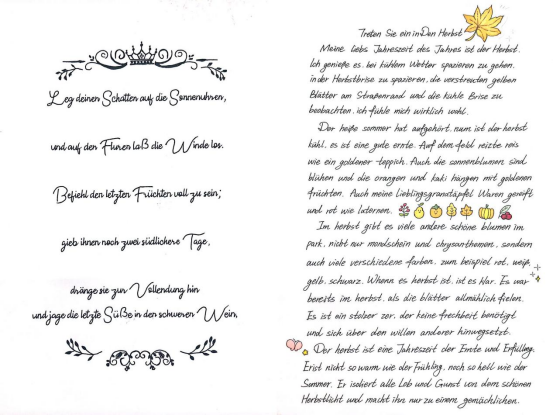 Leg deinen Schatten auf die Sonnenuhren,
und auf den Fluren laß die Winde los.
Befiehl den letzten Früchten voll zu sein;
gieb ihnen noch zwei südlichere Tage,
dränge sie zur Vollendung hin
und jage die letzte Süße in den schweren Wein.
Treten Sie ein in Den Herbst
Meine liebs Jahreszeit des Jahres ist der Herbst.
Ich genieße es, bei kühlem Wetter spazieren zu gehen,
in der Herbstbrise zu spazieren, die verstreuten gelben
Blätter am Straßenrand und die kühle Brise zu
beobachten, ich fühle mich wirklich wohl.
Der heiße sommer hat aufgehört, nun ist der herbst
kühl. es ist eine gute ernte. Auf dem feld reizte reis
wie ein goldener teppich. Auch die sonnenblumen sind
blühen und die orangen und kaki hängen mit goldenen
früchten. Auch meine lieblingsgranatäpfel Waren gereift
und rot wie laternen.
Im herbst gibt es viele andere schöne blumen im
park. nicht nur mondschein und chrysanthemen, sondern
auch viele verschiedene farben. zum beispiel rot, weiß,
gelb, schwarz. Whenn es herbst ist, ist es klar. Es war
bereits im herbst, als die blätter allmählich fielen.
Es ist ein stober zor, der keine frechheit benötigt
und sich über den willen anderer hinwegsetzt.
Der herbst ist eine Jahreszeit der Ernte und Erfüllung.
Er ist nicht so warm wie der Frühling, noch so heiß wie der
Summer. Er isoliert alle Lob und Gunst von dem schönen
Herbstlicht und macht ihn nur zu einem gemächlichen.